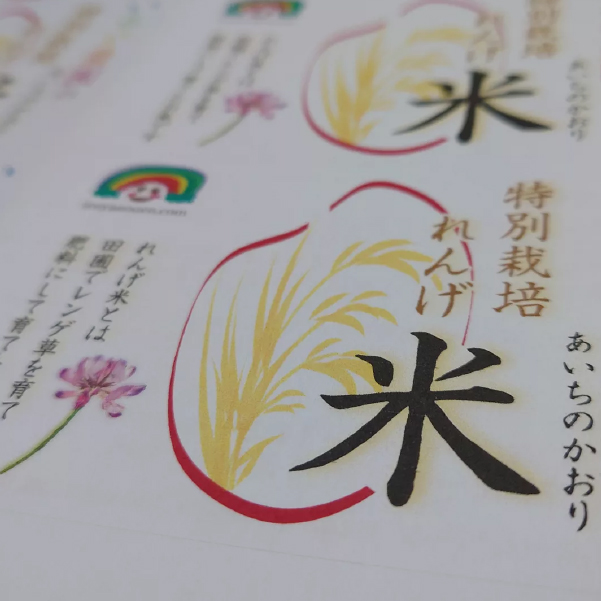 特別栽培
れんげ
米
あいちのかおり
れんげ米とは
田園でレンゲ草を育て
肥料にして育て
特別栽培
れんげ
米
あいちのかおり